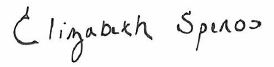 Elizabeth Speros